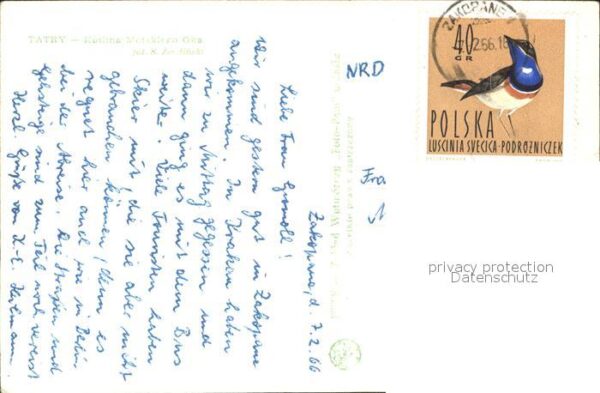 TATRY — Kotlina Morskiego Oka
Zakopane, d. 7.2.66
Liebe Frau
Wir sind gestern gut in Zakopane
angekommen. In Kraken haben
wir zu Mittag gegessen und
dann ging es mit dem Bus
weiter. Viele Touristen haben
Skier mit, die sie aber nicht
gebrauchen können, denn es
regnet hier auch wie in Berlin
bei der Abreise. Die Strassen und
sind zum Teil noch vereist
Herzl. Grüße von
NRD
ZAKOPANE 1
2.66.18
40
GR
POLSKA
LUSCINIA SVECICA-PODRÓŻNICZEK
privacy protection
Datenschutz